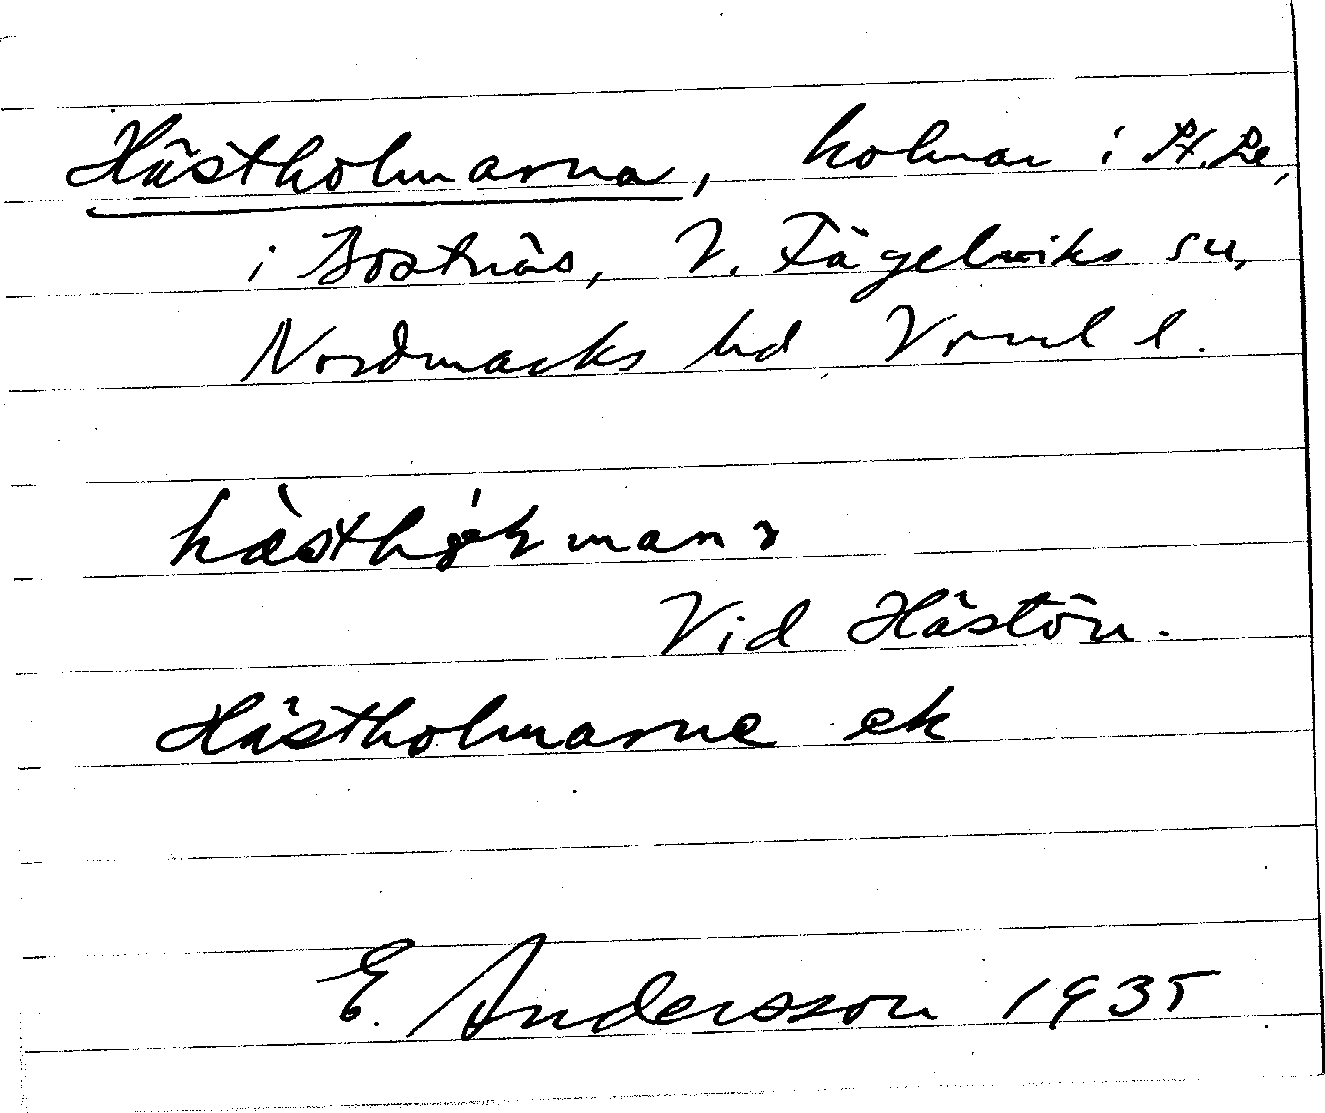 Hästholmarna, holmar i St. Le,
i Bostnäs, V. Fågelviks sn,
Nordmarks hd Värml l.
Vid Hästön.
Hästholmarne ek
E. Andersson 1935